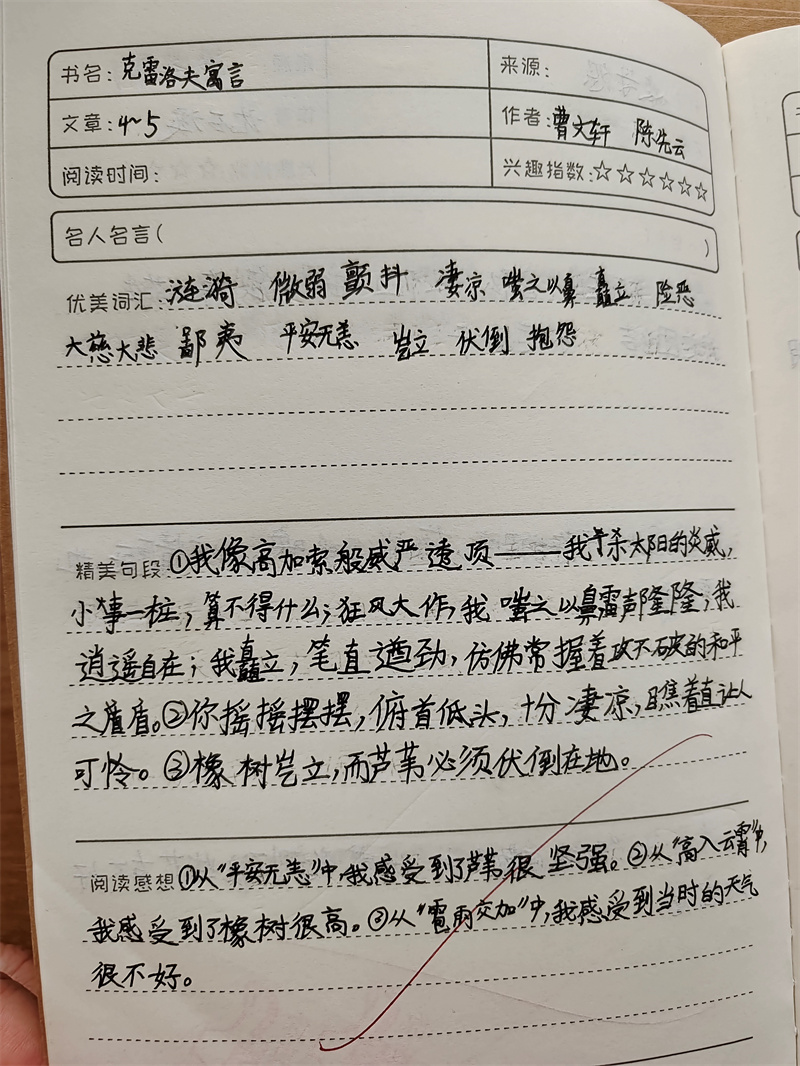 书名：克雷洛夫寓言
来源：
文章：4~5
作者：曹文轩 陈先云
阅读时间：
兴趣指数：☆☆☆☆☆☆
名人名言（ ）
优美词汇：涟漪 微弱 颤抖 凄凉 嗤之以鼻 矗立 险恶
大慈大悲 鄙夷 平安无恙 岂立 伏倒 抱怨
精美句段 ①我像高加索般威严透顶——我杀太阳的炎威，
小事一桩，算不得什么；狂风大作，我嗤之以鼻雷声隆隆；我
逍遥自在；我矗立，笔直遒劲，仿佛常握着攻不破的和平
之盾。②你摇摇摆摆，俯首低头，十分凄凉，瞧着直让人
可怜。③橡树岂立，而芦苇必须伏倒在地。
阅读感想 ①从“平安无恙”中，我感受到了芦苇很坚强。②从“高入云霄”中，
我感受到了橡树很高。③从“雹雨交加”中，我感受到当时的天气
很不好。